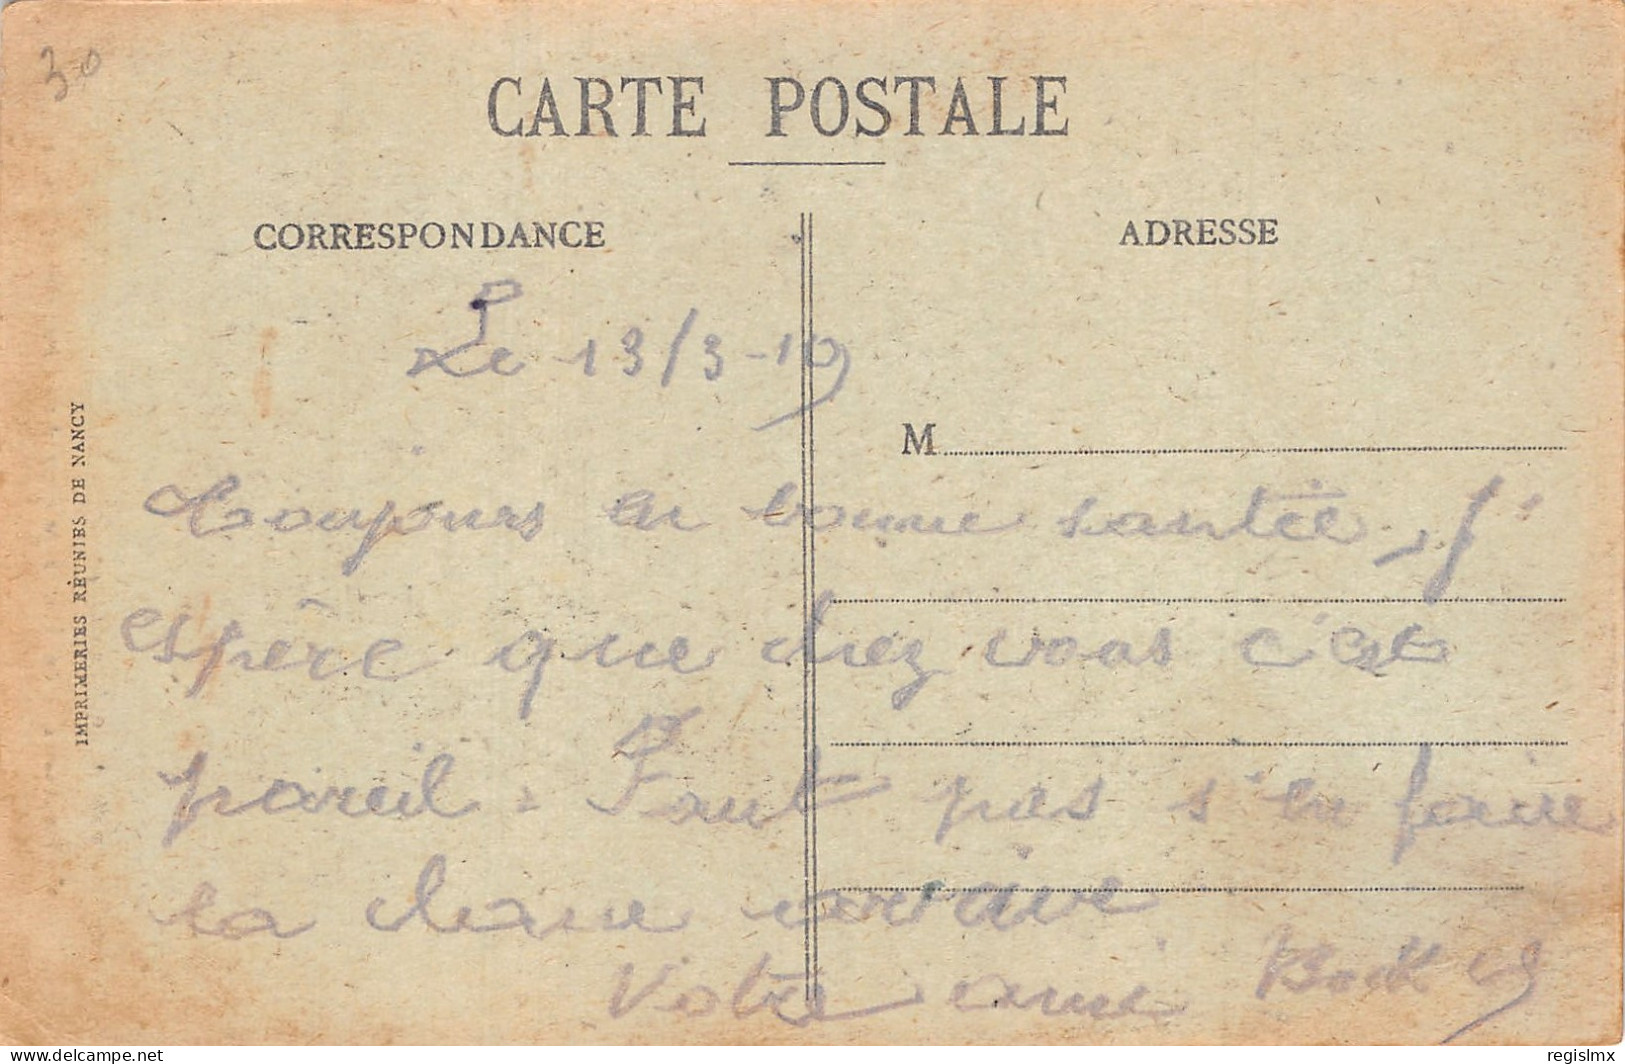 30
CARTE POSTALE
CORRESPONDANCE
ADRESSE
Le 13/3-19
M
IMPRIMERIES RÉUNIES DE NANCY
Toujours en bonne santée, j'
espère que chez vous c'est
pareil. Faut pas s'en faire
la classe arrive
Votre ami
www.delcampe.net
regislmx